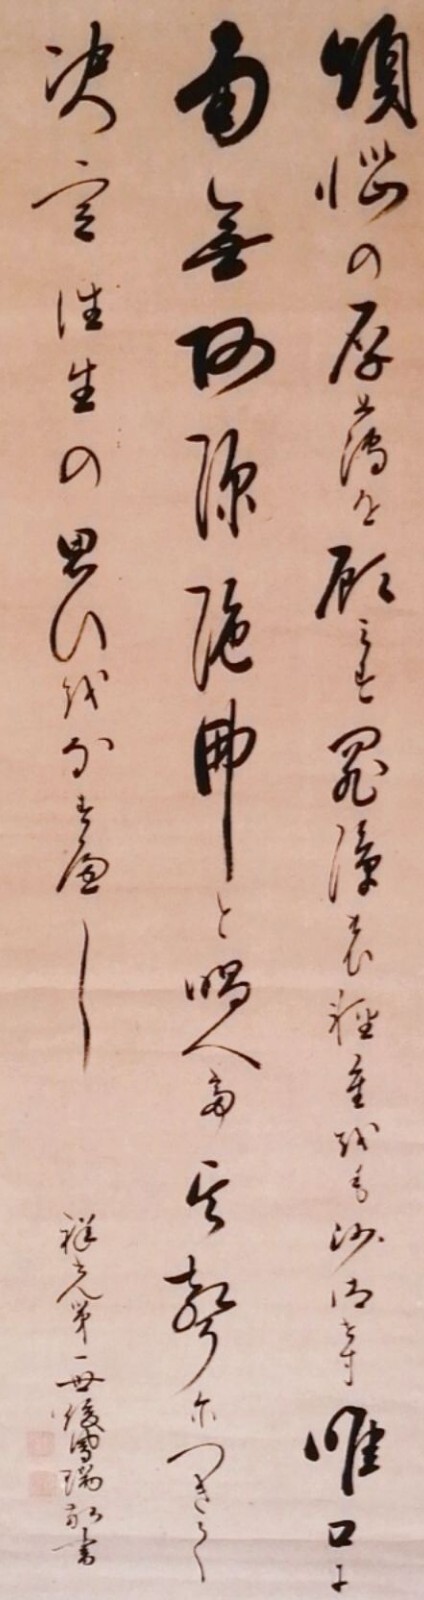 煩悩の厚薄を顧みず罪障の軽重をも沙汰せず唯口に
南無阿弥陀佛と唱へて其聲につきて
決定往生の思ひをなすべし
祥光第世鳳瑞書